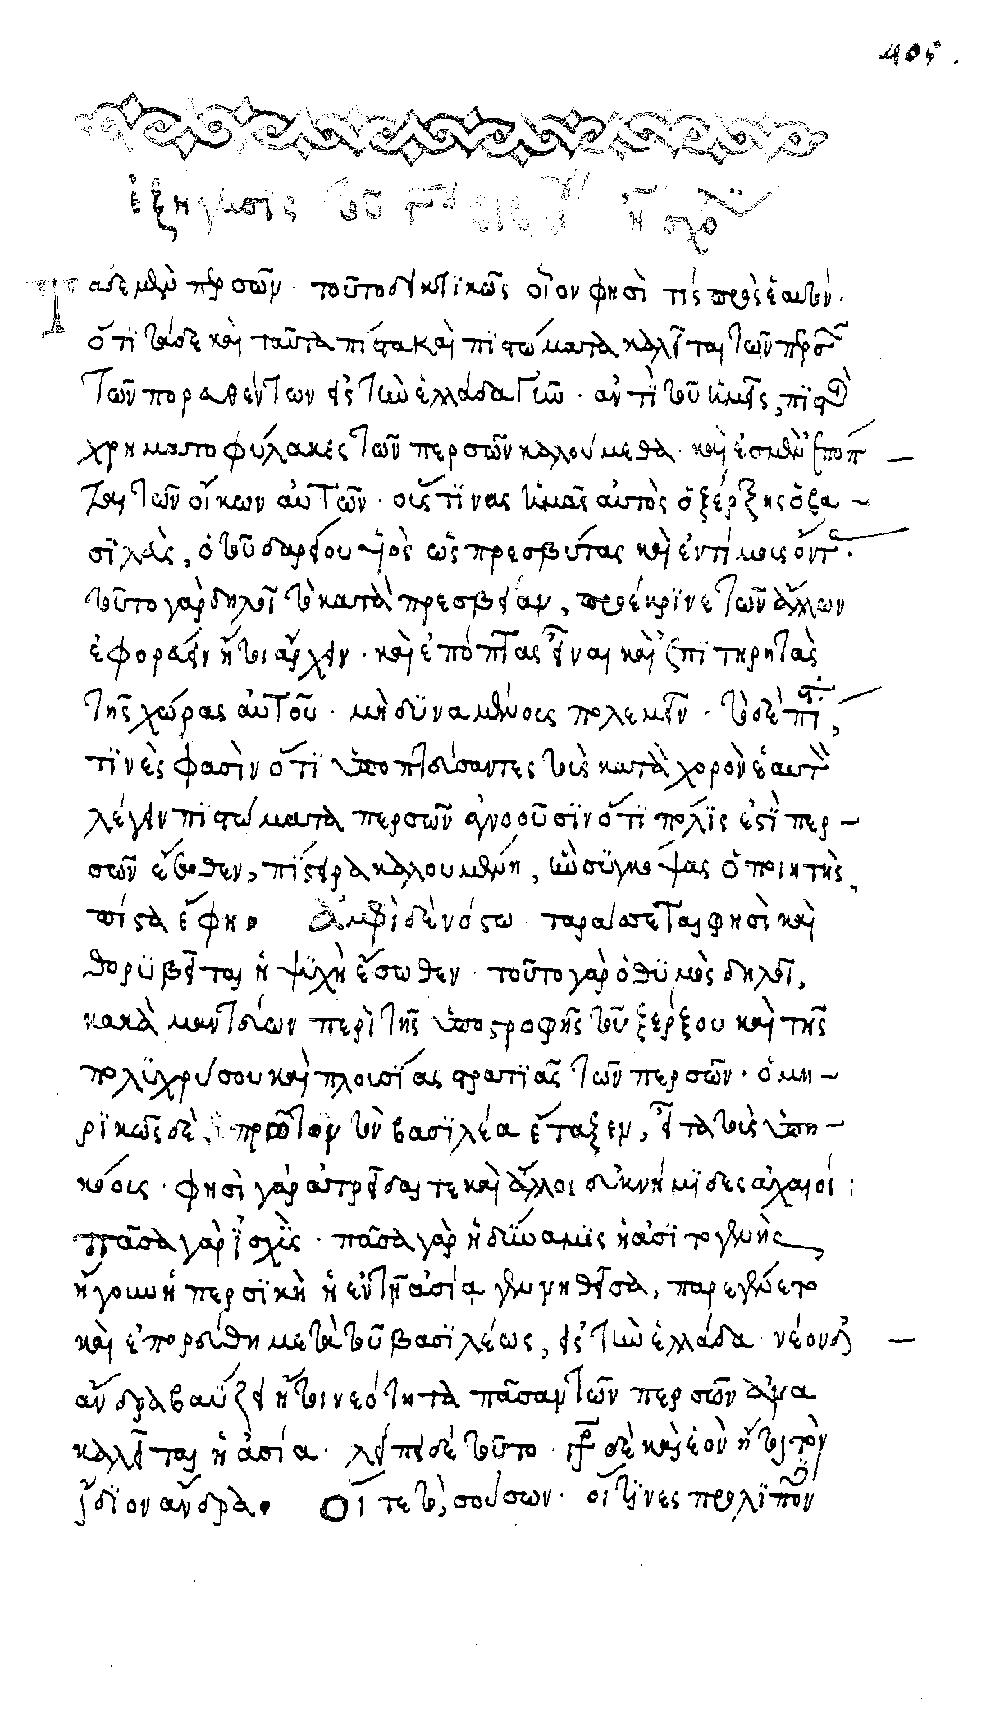 ἐξήγησις τοῦ ἢ σχό
Τάδε μὲν περσῶν · τοῦτο δεικτικῶς οἷον φησὶ τίς πρὸς ἑαυτόν ·
ὅτι τάδε καὶ ταῦτα πιστὰ καὶ πιστώματα καλεῖται τῶν περσῶν
τῶν πορευθέντων εἰς τὴν ἑλλάδα γῆν · ἀντὶ τοῦ ἡμεῖς, πιστοὶ
χρηματοφύλακες τῶν περσῶν καλούμεθα · καὶ ἐσμὲν ἐπόπ
ται τῶν οἴκων αὐτῶν · οὕς τινας ἡμᾶς αὐτὸς ὁ ξέρξης ὁ βα –
σιλεὺς, ὁ τοῦ δαρείου υἱὸς ὡς πρεσβύτας καὶ ἐντίμους ὄντας ·
τοῦτο γὰρ δηλοῖ τὸ κατὰ πρεσβείαν, προέκρινε τῶν ἄλλων
ἐφορεύειν ἤτοι ἄρχειν · καὶ ἐπόπτας εἶναι καὶ ἐπιτηρητὰς
τῆς χώρας αὐτοῦ · μὴ δυναμένους πολεμεῖν · τὸ δὲ πιστὰ,
τινὲς φασὶν ὅτι ὑποπτεύσαντες τοὺς κατὰ χορὸν ἑαυτὰ
λέγειν πιστώματα περσῶν ἀγνοοῦσιν ὅτι πόλις ἐστὶ περ –
σῶν ἔνθεν, πίστειρα καλουμένη, ἣν συγκόψας ὁ ποιητὴς,
πίστὰ ἔφη · Ἀμφὶ δὲ νόστῳ · ταράττεται φησὶ καὶ
θορυβεῖται ἡ ψυχὴ ἔσωθεν · τοῦτο γὰρ ὁ θυμὸς δηλοῖ,
κακὰ μαντεύων περὶ τῆς ὑποστροφῆς τοῦ ξέρξου καὶ τῆς
πολυχρύσου καὶ πλουσίας στρατιᾶς τῶν περσῶν · ὁμη –
ρικῶς δὲ, πρῶτον τὸν βασιλέα ἔταξεν, εἶτα τοὺς ὑπη –
κόους · φησὶ γὰρ ἀτρεῖδαι τε καὶ ἄλλοι εὐκνήμιδες ἀχαιοί :
πᾶσα γὰρ ἰσχὺς · πᾶσα γὰρ ἡ δύναμις ἡ ἀσιατογενὴς,
ἤγουν ἡ περσικὴ ἡ ἐν τῇ ἀσίᾳ γεννηθεῖσα, παρεγένετο
καὶ ἐπορεύθη μετὰ τοῦ βασιλέως, εἰς τὴν ἑλλάδα · νέον δ' –
ἄνδρα βαΰζει ἤτοι νεότητα πᾶσαν τῶν περσῶν ἅμα
καλεῖται ἡ ἀσία · λείπει δὲ τοῦτο · γρ. δὲ καὶ ἑὸν ἤτοι τὸν
ἴδιον ἄνδρα · Οἵ τε τὸ σούσων · οἵτινες προλιπόντες